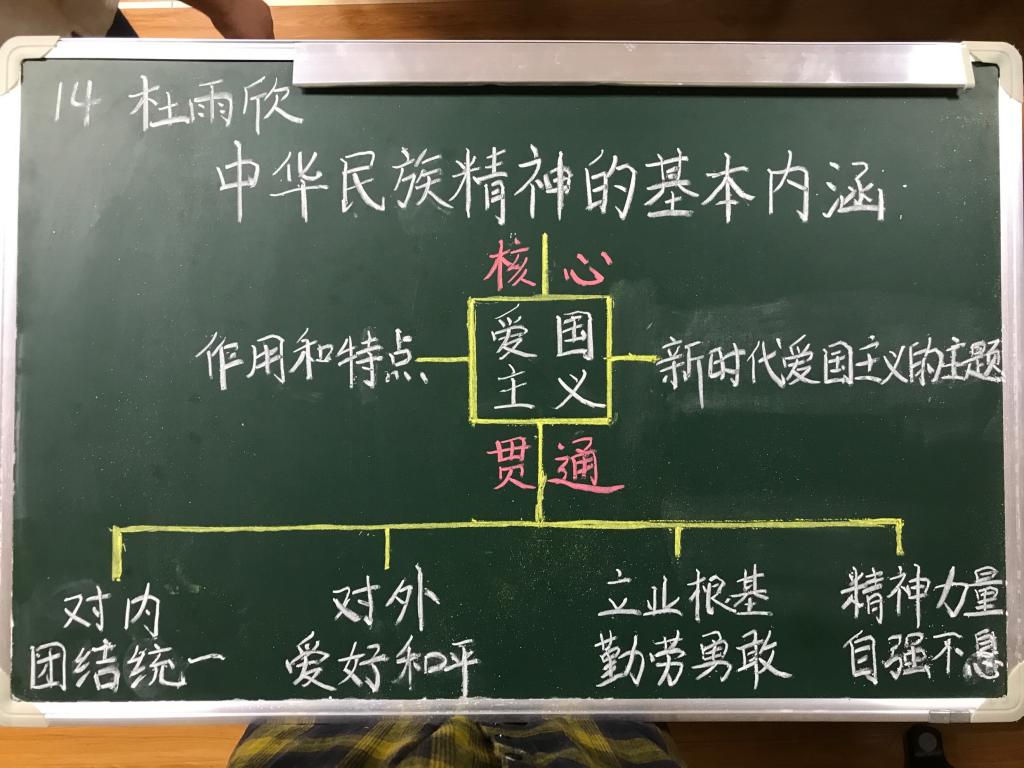 14 杜雨欣
中华民族精神的基本内涵
核心
作用和特点
爱国
主义
新时代爱国主义的主题
贯通
对内
团结统一
对外
爱好和平
立业根基
勤劳勇敢
精神力量
自强不息